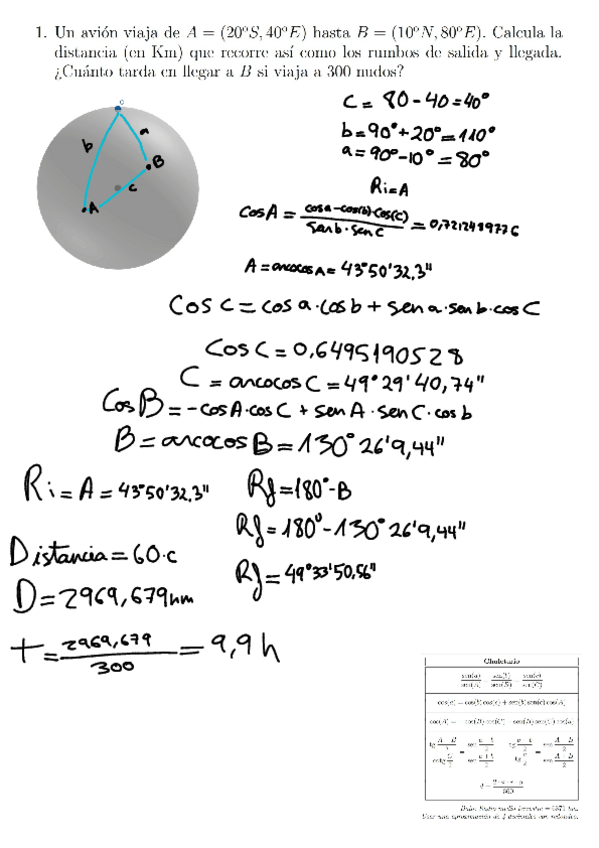 1. Un avión viaja de A = (20°S, 40°E) hasta B = (10°N, 80°E). Calcula la
distancia (en Km) que recorre así como los rumbos de salida y llegada.
¿Cuánto tarda en llegar a B si viaja a 300 nudos?
c = 80 - 40 = 40°
b = 90° + 20° = 110°
a = 90° - 10° = 80°
b
a
B
c
A
Ri = A
Cos A = (cos a - cos(b)·cos(c)) / (sen b · sen c) = 0,7212489776
A = arccos A = 43°50'32,3"
Cos c = cos a · cos b + sen a · sen b · cos C
Cos C = 0,6495190528
C = arcocos C = 49°29'40,74"
Cos B = -cos A · cos C + sen A · sen C · cos b
B = arcocos B = 130°26'9,44"
Ri = A = 43°50'32,3"
Rf = 180° - B
Rf = 180° - 130°26'9,44"
Rf = 49°33'50,56"
Distancia = 60·c
D = 2969,679 nm
t = 2969,679 / 300 = 9,9 h
Chuletario
cos(a) = cos(b) cos(c) + sen(b) sen(c) cos(A)